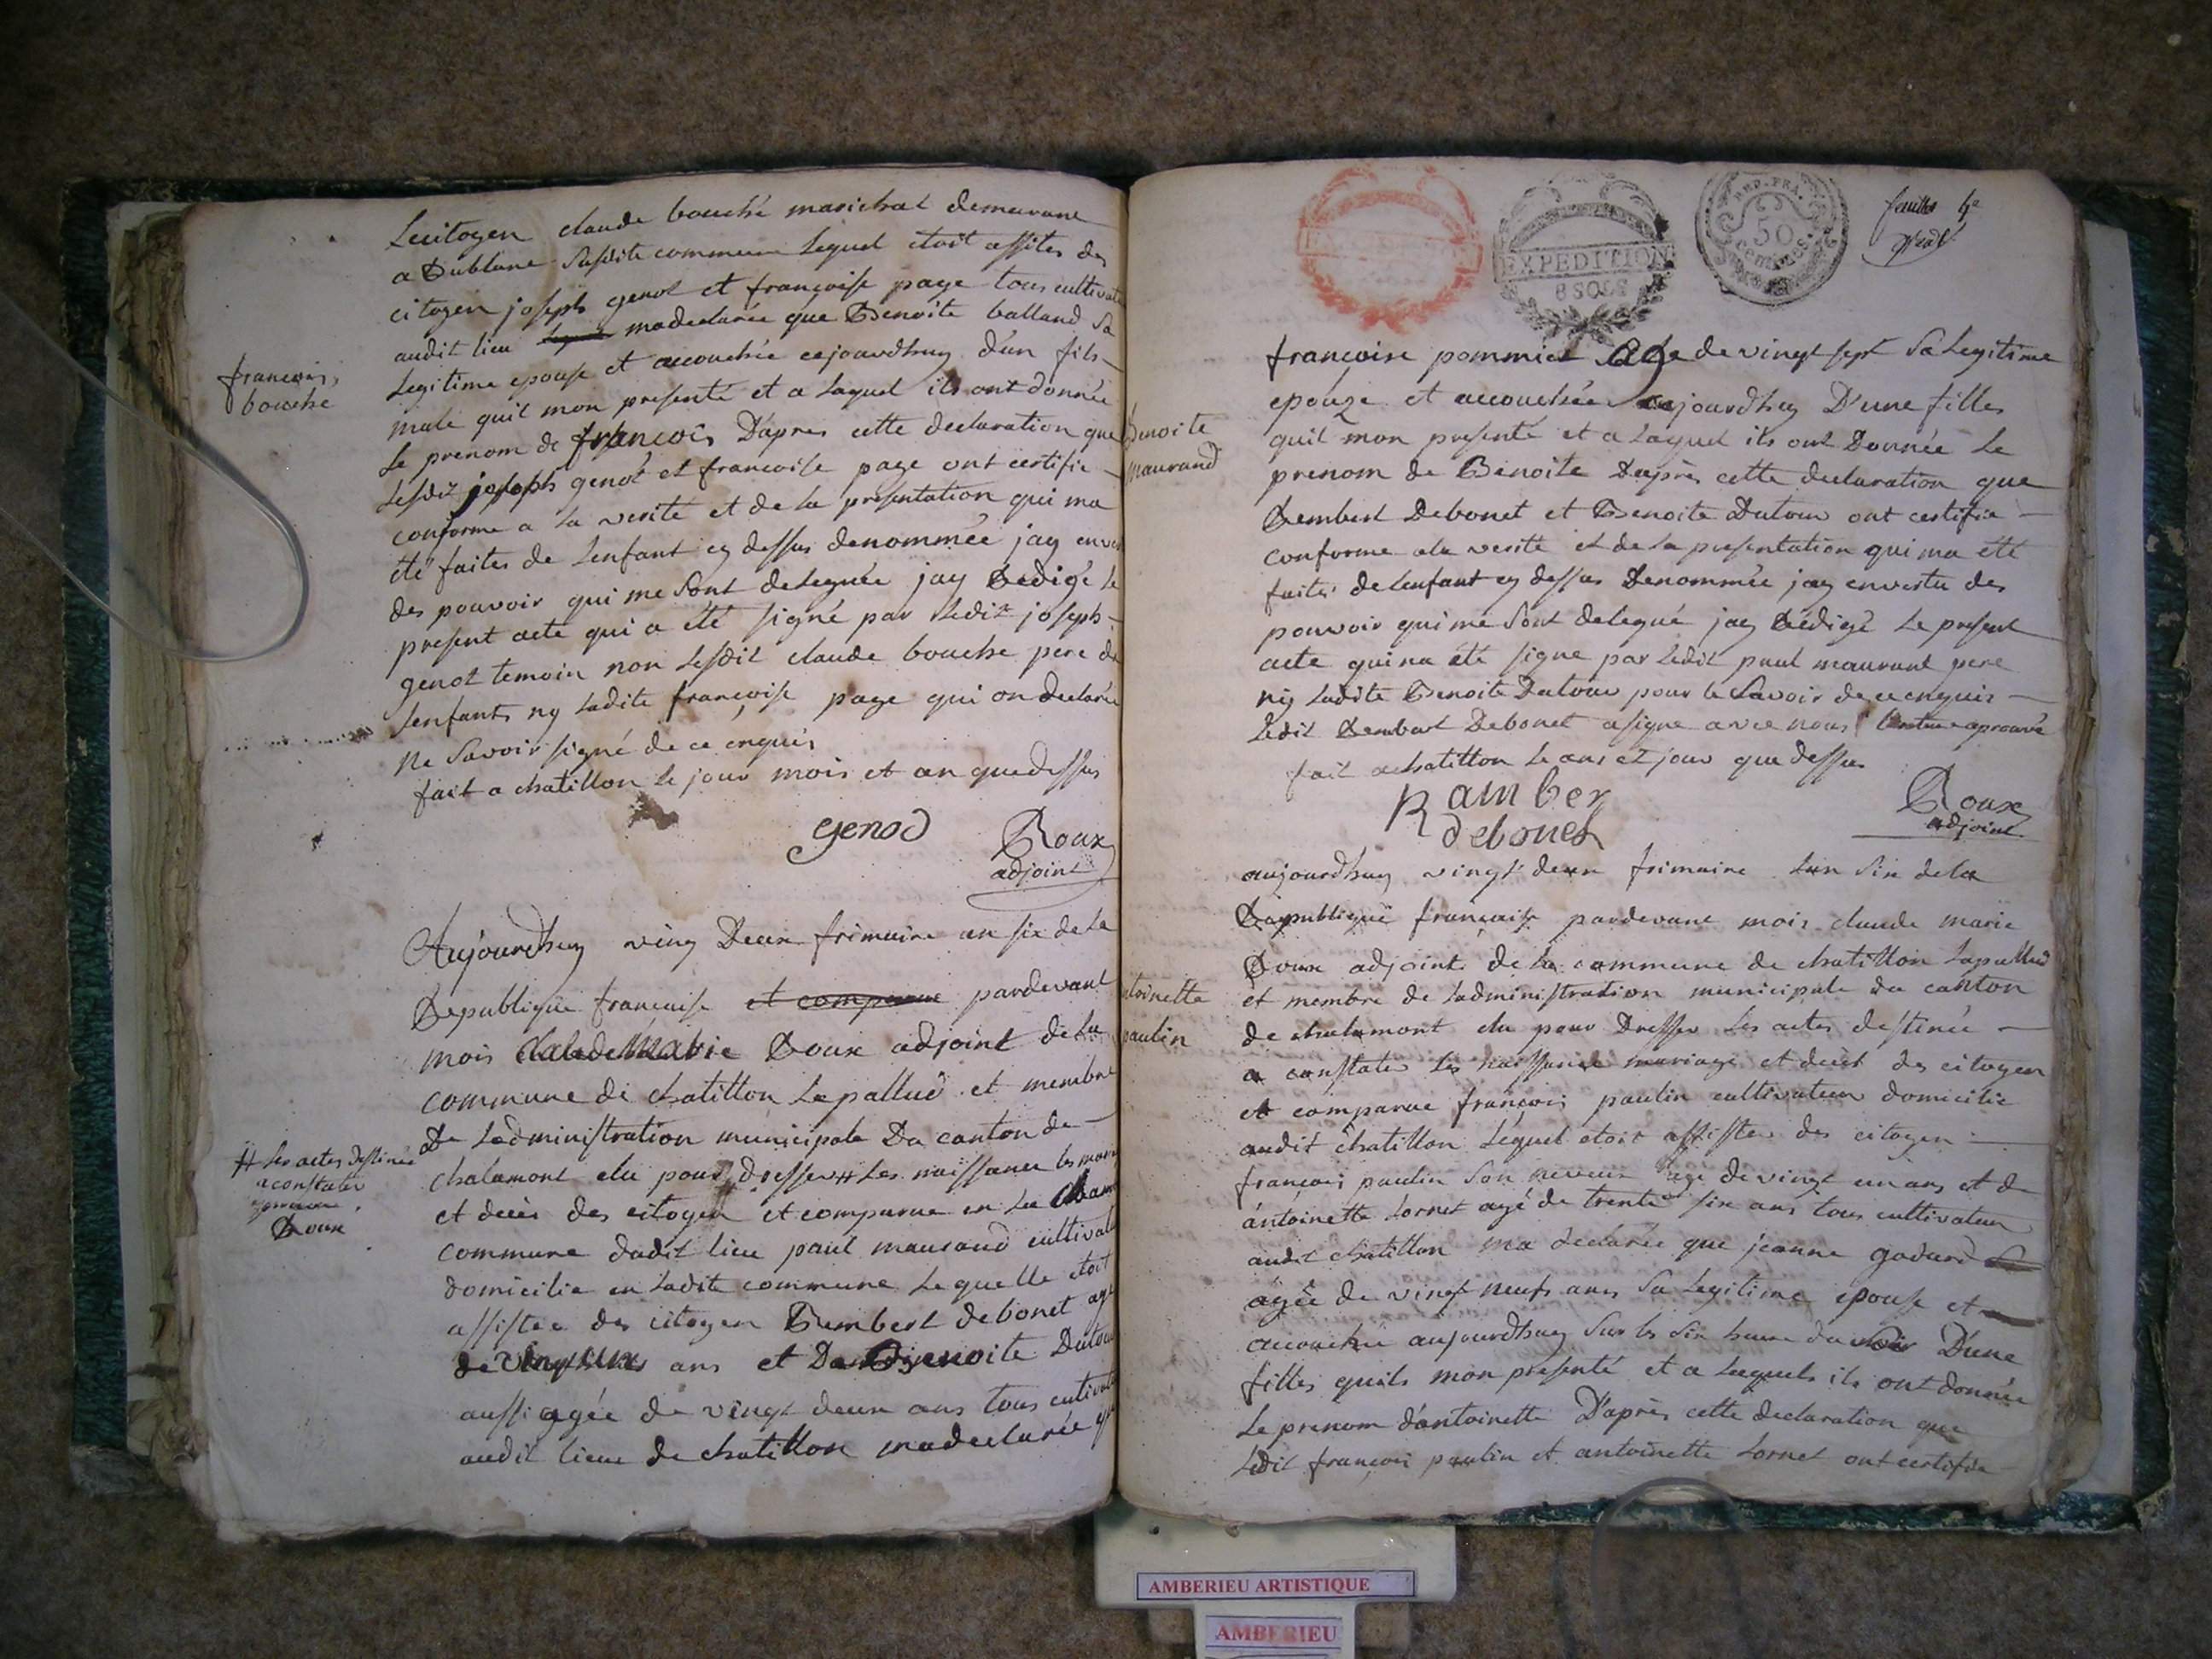 Lecitoyen claude bouché marichal demeurant
a Dublane susdite commune lequel etoit assites des
citoyen joseph genot et françoise page tous cultivat
audit lieu madeclarée que Benoite balland sa
Legitime epouse et accouchée cejourdhuy d'un fils
male quil mon presenté et a laquel ils ont donnée
le prenom de françois D'apres cette declaration que
lesdit joseph genot et francoise page ont certifie
conforme a la verité et de la presentation qui ma
été faites de lenfant cy dessus denommée jay enver
des pouvoir qui me sont deleguée jay Redigé le
present acte qui a été signé par ledit joseph
genot temoin non lesdit claude bouche pere de
lenfants ny ladite françoise page qui on declarée
ne savoir signé de ce enquis
fait a chatillon le jour mois et an que dessus
genod
Roux
adjoint
françois
bouche
Aujourdhuy ving Deux frimaire an six de la
Republique francaise et comparue pardevant
mois Claude Marie Roux adjoint de la
commune de chatillon lapallud et membre
De Ladministration municipale Du canton de
chalamont elu pour dresser # les naissance les mari
et deces des citoyen et comparue en la cham
commune dudit lieu paul maurand cultivat
domicilie en ladite commune lequelle etoit
assistee des citoyen Rembert debonet age
de ans et De Benoite Dutour
aussi agée de vingt deux ans tous cultivat
audit lieu de chatillon madeclarée que
# les actes destinée
a constater
Roux
EXPEDITION
8 SOLS
REP. FRA.
50
Centimes
feuille
francoise pommier age de vingt sept sa legitime
epouze et accouchée cejourdhuy D'une filles
quil mon presenté et a laquel ils ont Donnée le
prenom de Benoite Daprès cette declaration que
Rembert Debonet et Benoite Dutour ont certifie
conforme ala verité et de la presentation qui ma été
faites de lenfant cy dessus Denommée jay envertu des
pouvoir qui me sont delegué jay Rédigé le present
acte qui na été signe par ledit paul maurand pere
ny ladite Benoite Dutour pour le savoir de ce enquis
ledit Rembert Debonet a signe avec nous aprouvé
fait a chatillon le ans et jour que dessus
Ramber
debonet
Roux
adjoint
Benoite
maurand
aujourdhuy vingt deux frimaire lan six dela
Republique française pardevant mois claude marie
Roux adjoint de la commune de chatillon lapallud
et membre de ladministration municipale du canton
de chalamont elu pour Dresser les actes destinée
a constater les naissance mariage et decès des citoyen
et comparue françois paulin cultivateur domicilie
audit chatillon léquel etoit assister des citoyen
françois paulin son neveux agé de vingt un ans et de
antoinette lornet agé de trente six ans tous cultivateur
audit chatillon ma declarée que jeanne godard
agée de vingt neufs ans sa legitime epouse et
accouchée aujourdhuy sur les six heure du soir D'une
filles quils mon presenté et a laquels ils ont donnée
Le prenom d'antoinette D'après cette declaration que
ledit françois paulin et antoinette lornet ont certifie
toinette
paulin
AMBERIEU ARTISTIQUE
AMBERIEU